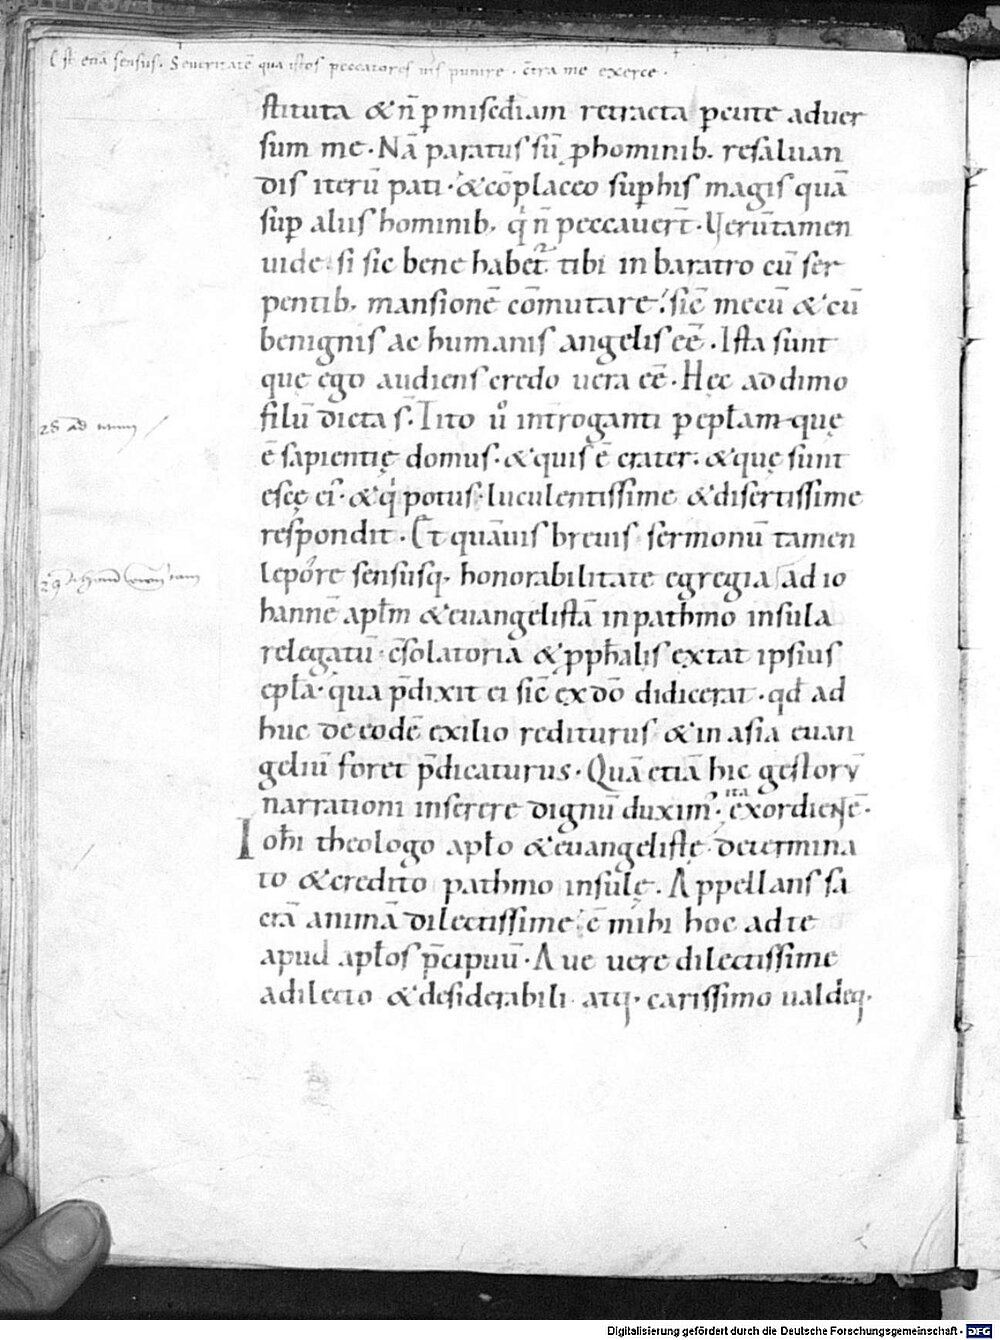 Est etiā sensus. Severitatē qua istos peccatores vis punire. c̄tra me exerce.
stituta &n̄ ꝑ misedīam retracta ꝑcute aduer
sum me. Nā paratus sū ꝓhominib. resaluan
dis iterū pati. &cōplaceo suꝑhis magis quā
suꝑ aliis hominib. qͥ n̄ peccauert̄. Verūtamen
uide. si sic bene habet᷑ tibi in baratro cū ser
pentib. mansionē cōmutare. sic̄ mecū &cū
benignis ac humanis angelis eē. Ista sunt
quę ego audiens credo uera eē. Hęc ad dimo
filū dicta s̄. Tito ū int̄roganti ꝑ epłam quę
ē sapientię domus. &quis ē crater. &quę sunt
escę ei. &qͥ potus. luculentissime &disertissime
respondit. Et quāuis breuis sermonū tamen
lepore sensusq. honorabilitate egregia ad io
hannē apłm &euangelistā in pathmo insula
relegatū. c̄solatoria &ꝓph̄alis extat ipsius
epła. qua p̄dixit ei sic̄ ex dō didicerat. qd̄ ad
huc de eodē exilio rediturus &in asia euan
geliū foret p̄dicaturus. Quā etiā hic gestorꝝ
ita
narrationi inserere dignū duxim᷒. exordienē.
Ioh̄i theologo apło &euangelistę determina
to &credito pathmo insulę. Appellans sa
crā animā dilectissime. ē mihi hoc ad te
apud apłos p̄cipuū. Aue uere dilectissime
adilecto &desiderabili atq. carissimo ualdeq.
28 ad titum
29
Digitalisierung gefördert durch die Deutsche Forschungsgemeinschaft - DFG